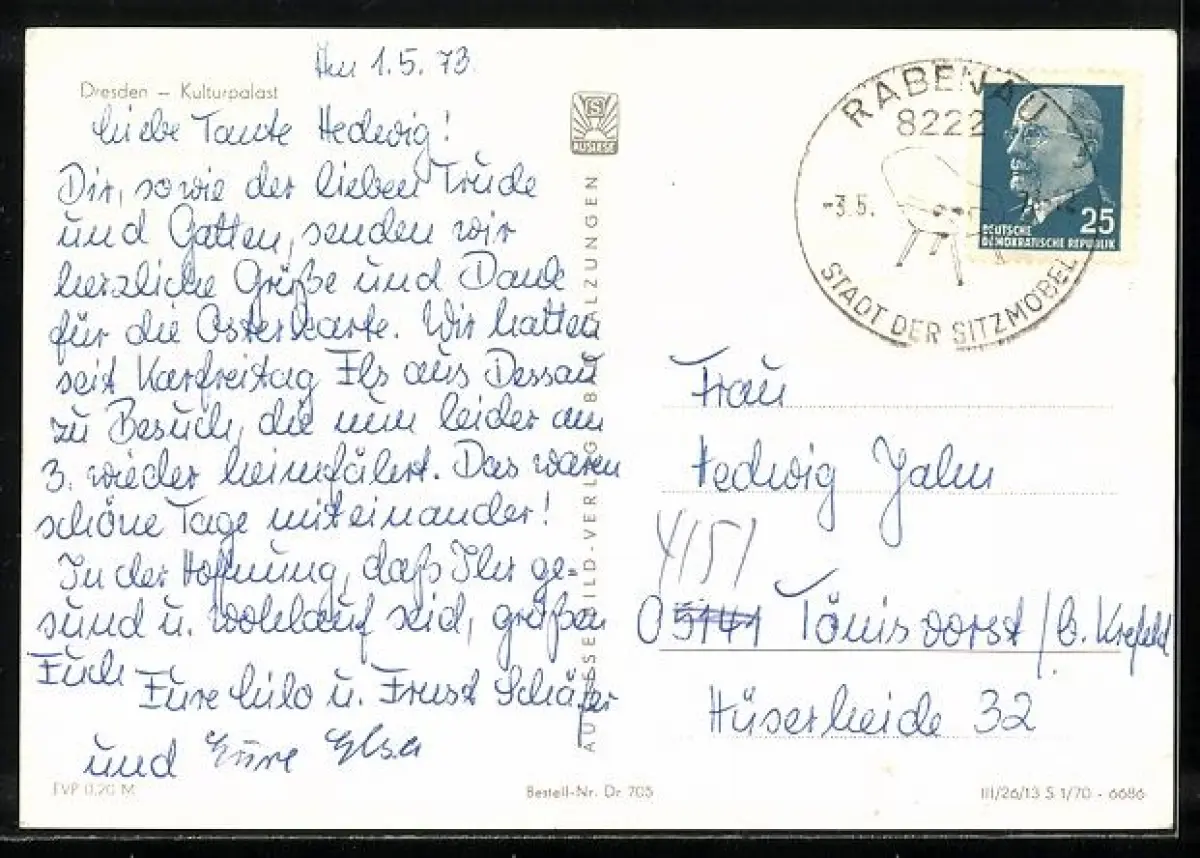 Am 1.5.73
Dresden – Kulturpalast
Liebe Tante Hedwig!
Dir, sowie der lieben Trude
und Gatten, senden wir
herzliche Grüße und Dank
für die Osterkarte. Wir hatten
seit Karfreitag Els aus Dessau
zu Besuch, die nun leider am
3. wieder heimfährt. Das waren
schöne Tage miteinander!
In der Hoffnung, daß Ihr ge-
sund u. wohlauf seid, grüßen
Euch
Eure Lilo u. Ernst Schäfer
und Eure Elsa
EVP 0,20 M
AUSLESE
AUSLESE-BILD-VERLAG BAD SALZUNGEN
Bestell-Nr. Dr 705
RABENAU
8222
-3.5.
STADT DER SITZMÖBEL
25
DEUTSCHE
DEMOKRATISCHE REPUBLIK
Frau
Hedwig Jahn
4151
Tönisvorst / b. Krefeld
Hüserheide 32
III/26/13 S 1/70 - 6686